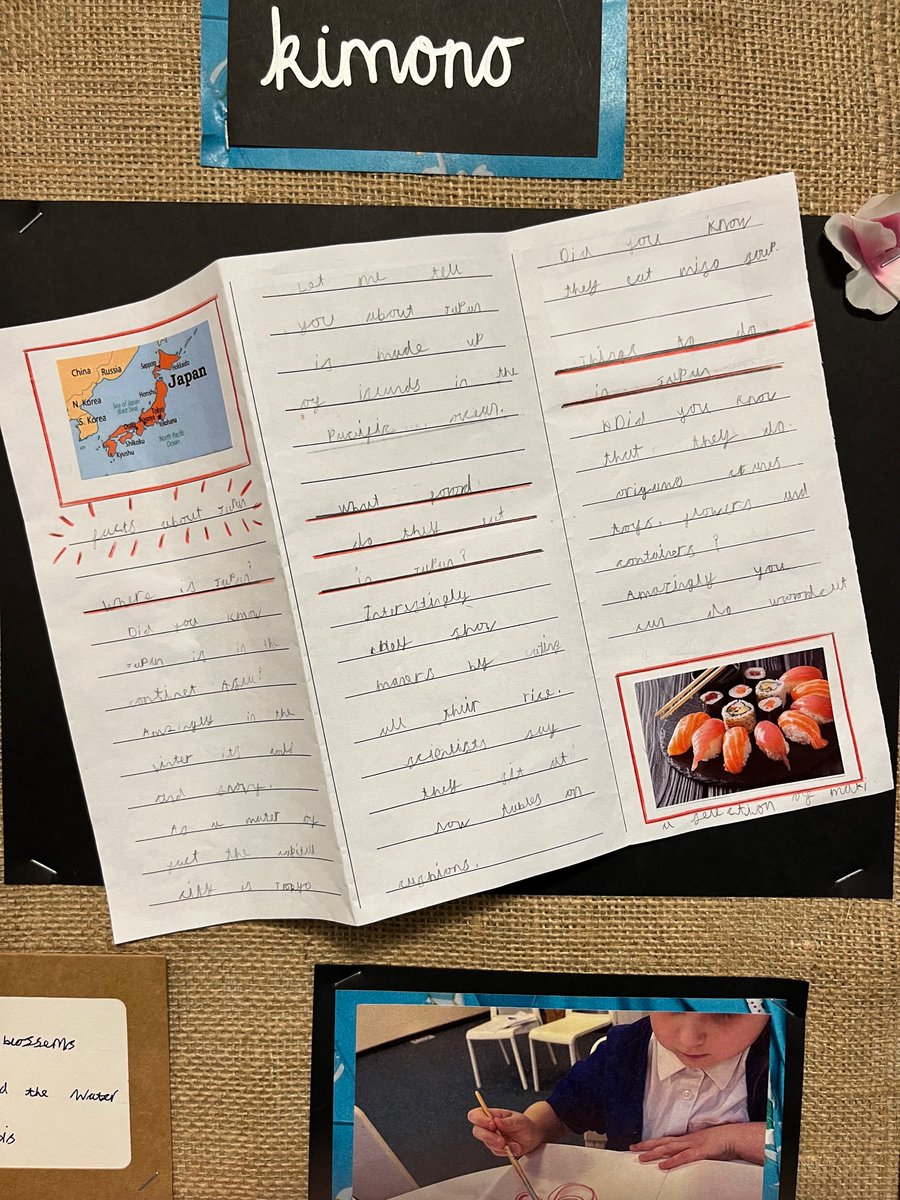 kimono
China
Russia
Sapporo
Hokkaido
Japan
N. Korea
Sea of Japan
(East Sea)
Honshu
S. Korea
Tokyo
Nagoya
Yokohama
Osaka
Shikoku
North Pacific
Ocean
Kyushu
facts about Japan
Where is Japan?
Did you know
Japan is in the
continet Asia?
Amazingly in the
winter its cold
and snowy.
As a mater of
fact the capitall
city is Tokyo
Let me tell
you about Japan
is made up
of iselands in the
Pacific ocean.
What food
do they eat
in Japan?
Interestingly
they show
maners by eating
all their rice.
scientists say
they sit at
low tables on
cushions.
Did you know
they eat miso soup.
Things to do
in Japan
Did you know
that they do
origuno
toys, flowers and
containers?
Amazingly you
can do woodcut
a selection of maki
blossems
d the Water